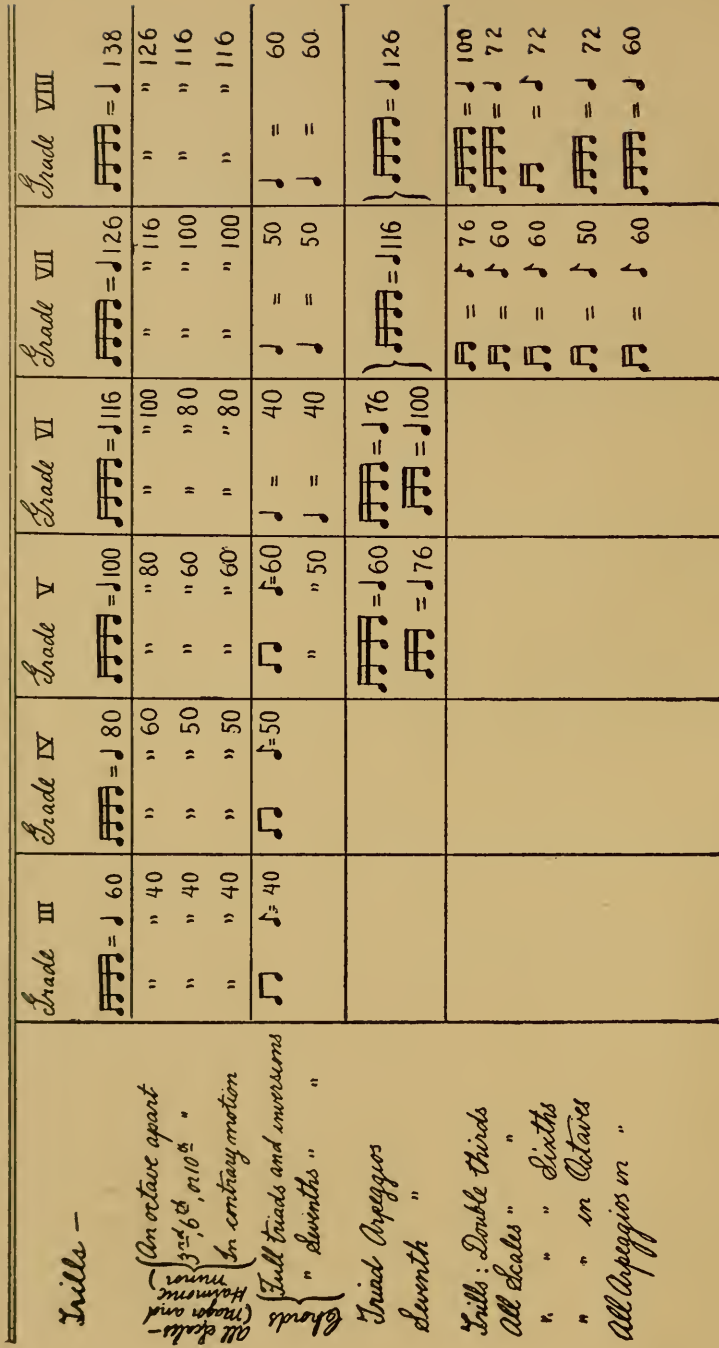 Grade III Grade IV Grade V Grade VI Grade VII Grade VIII
Trills — = ♩ 60 = ♩ 80 = ♩ 100 = ♩ 116 = ♩ 126 = ♩ 138
All Scales - (Major and Harmonic minor)
An octave apart " " 40 " " 60 " " 80 " " 100 " " 116 " " 126
3rd, 6th, or 10th " " " 40 " " 50 " " 60 " " 80 " " 100 " " 116
In contrary motion " " 40 " " 50 " " 60 " " 80 " " 100 " " 116
Chords
Full triads and inversions ♫ ♪= 40 ♫ ♪=50 ♫ ♪=60 ♩ = 40 ♩ = 50 ♩ = 60
" Sevenths " " " " 50 ♩ = 40 ♩ = 50 ♩ = 60
Triad Arpeggios = ♩ 60 = ♩ 76 = ♩ 116 = ♩ 126
Seventh " = ♩ 76 = ♩ 100
Trills: Double thirds ♫ = ♪ 76 = ♩ 100
All Scales " " ♫ = ♪ 60 = ♩ 72
" " " Sixths ♫ = ♪ 60 ♫ = ♪ 72
" " in Octaves ♫ = ♪ 50 = ♩ 72
All Arpeggios in " ♫ = ♪ 60 = ♩ 60